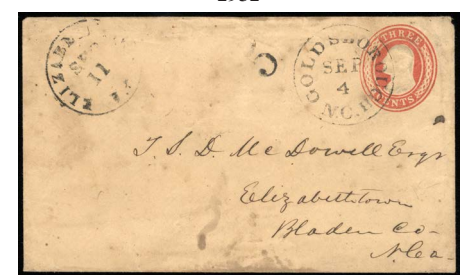 ELIZABE
SEP
11
GOLDSBORO
SEP
4
N.C.
THREE
CENTS
T. S. D. McDowell Esqr
Elizabethtown
Bladen Co-
N Ca